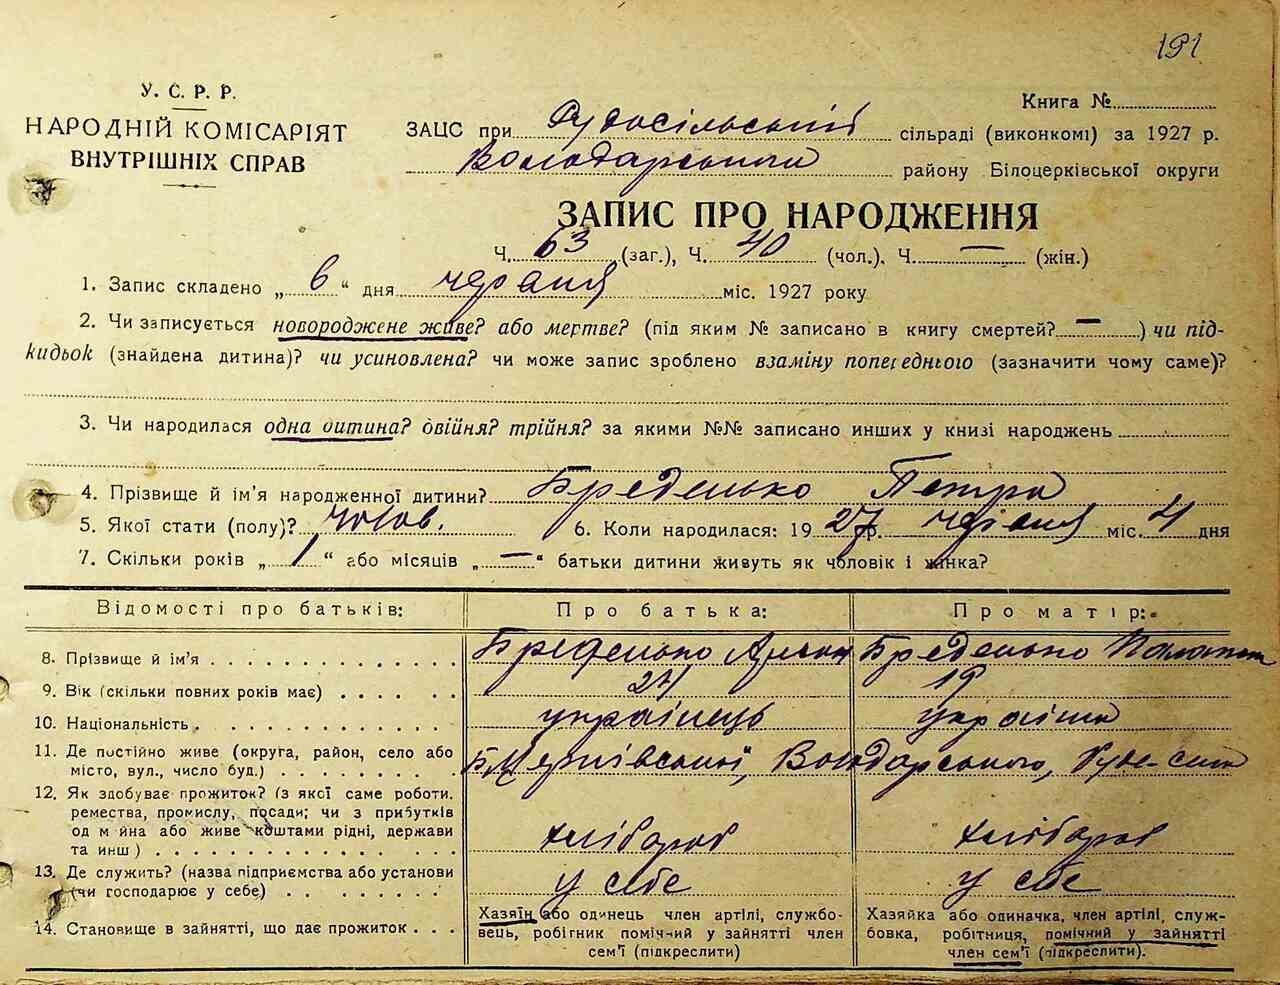 191
У. С. Р. Р.
НАРОДНІЙ КОМІСАРІЯТ
ВНУТРІШНІХ СПРАВ
Книга №
ЗАЦС при Рудосільській сільраді (виконкомі) за 1927 р.
Володарського району Білоцерківської округи
ЗАПИС ПРО НАРОДЖЕННЯ
Ч. 63 (заг.), Ч. 40 (чол.), Ч. — (жін.)
1. Запис складено „ 6 “ дня червня міс. 1927 року
2. Чи записується новороджене живе? або мертве? (під яким № записано в книгу смертей? — ) чи під-
кидьок (знайдена дитина)? чи усиновлена? чи може запис зроблено взаміну попереднього (зазначити чому саме)?
3. Чи народилася одна дитина? двійня? трійня? за якими №№ записано инших у книзі народжень
—
4. Прізвище й ім'я народженної дитини? Бреденько Петро
5. Якої стати (полу)? чолов. 6. Коли народилася: 1927 р. червня міс. 4 дня
7. Скільки років „ 1 “ або місяців „ — “ батьки дитини живуть як чоловік і жінка?
Відомості про батьків: Про батька: Про матір:
8. Прізвище й ім'я Бреденько Антон Бреденько
9. Вік (скільки повних років має) 19
10. Національність українець українка
11. Де постійно живе (округа, район, село або
місто, вул., число буд.) Володарського, Руде-село
12. Як здобуває прожиток? (з якої саме роботи,
ремества, промислу, посади; чи з прибутків
од майна або живе коштами рідні, держави
та инш) хлібороб хлібороб
13. Де служить? (назва підприємства або установи
(чи господарює у себе) у себе у себе
14. Становище в зайнятті, що дає прожиток
Хазяїн або одинець член артілі, службо-
вець, робігник помічний у зайнятті член
сем'ї (підкреслити)
Хазяйка або одиначка, член артілі, служ-
бовка, робітниця, помічний у зайнятті
член сем'ї (підкреслити).